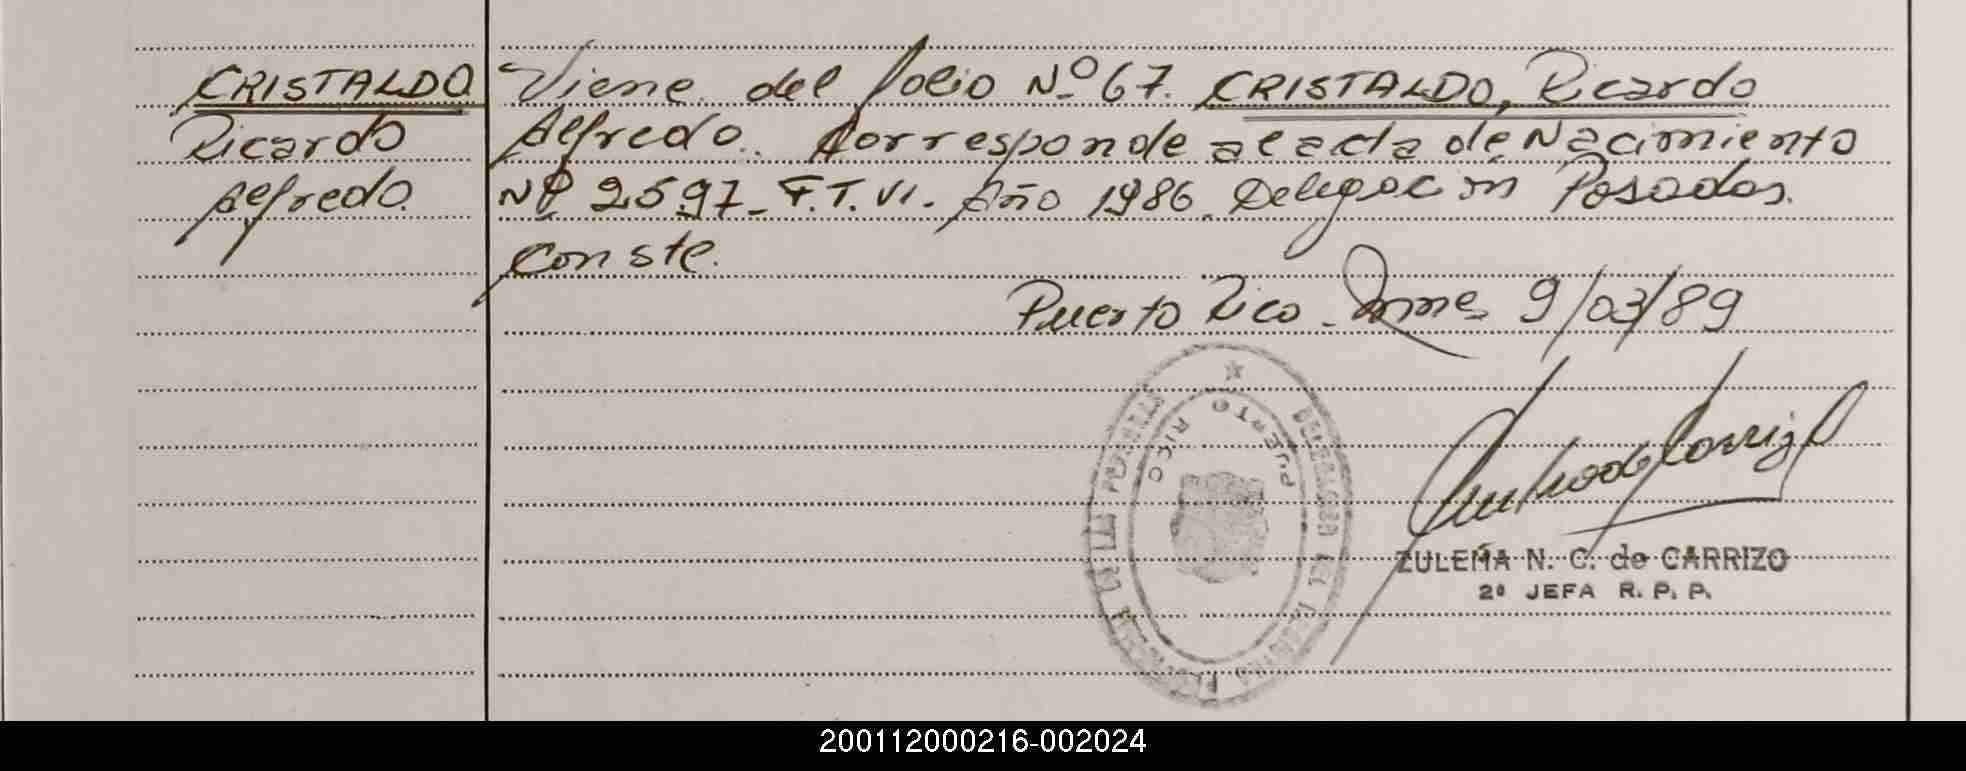 CRISTALDO
Ricardo
Alfredo.
Viene del folio Nº 67. CRISTALDO, Ricardo
Alfredo. Corresponde al acta de Nacimiento
Nº 2597 - F.T.VI. Año 1986. Delegación Posadas.
Conste.
Puerto Rico. Mnes 9/03/89
DELEGACION DEL REGISTRO PROVINCIAL DE LAS PERSONAS
PUERTO RICO
ZULEMA N. C. de CARRIZO
2ª JEFA R. P. P.
200112000216-002024